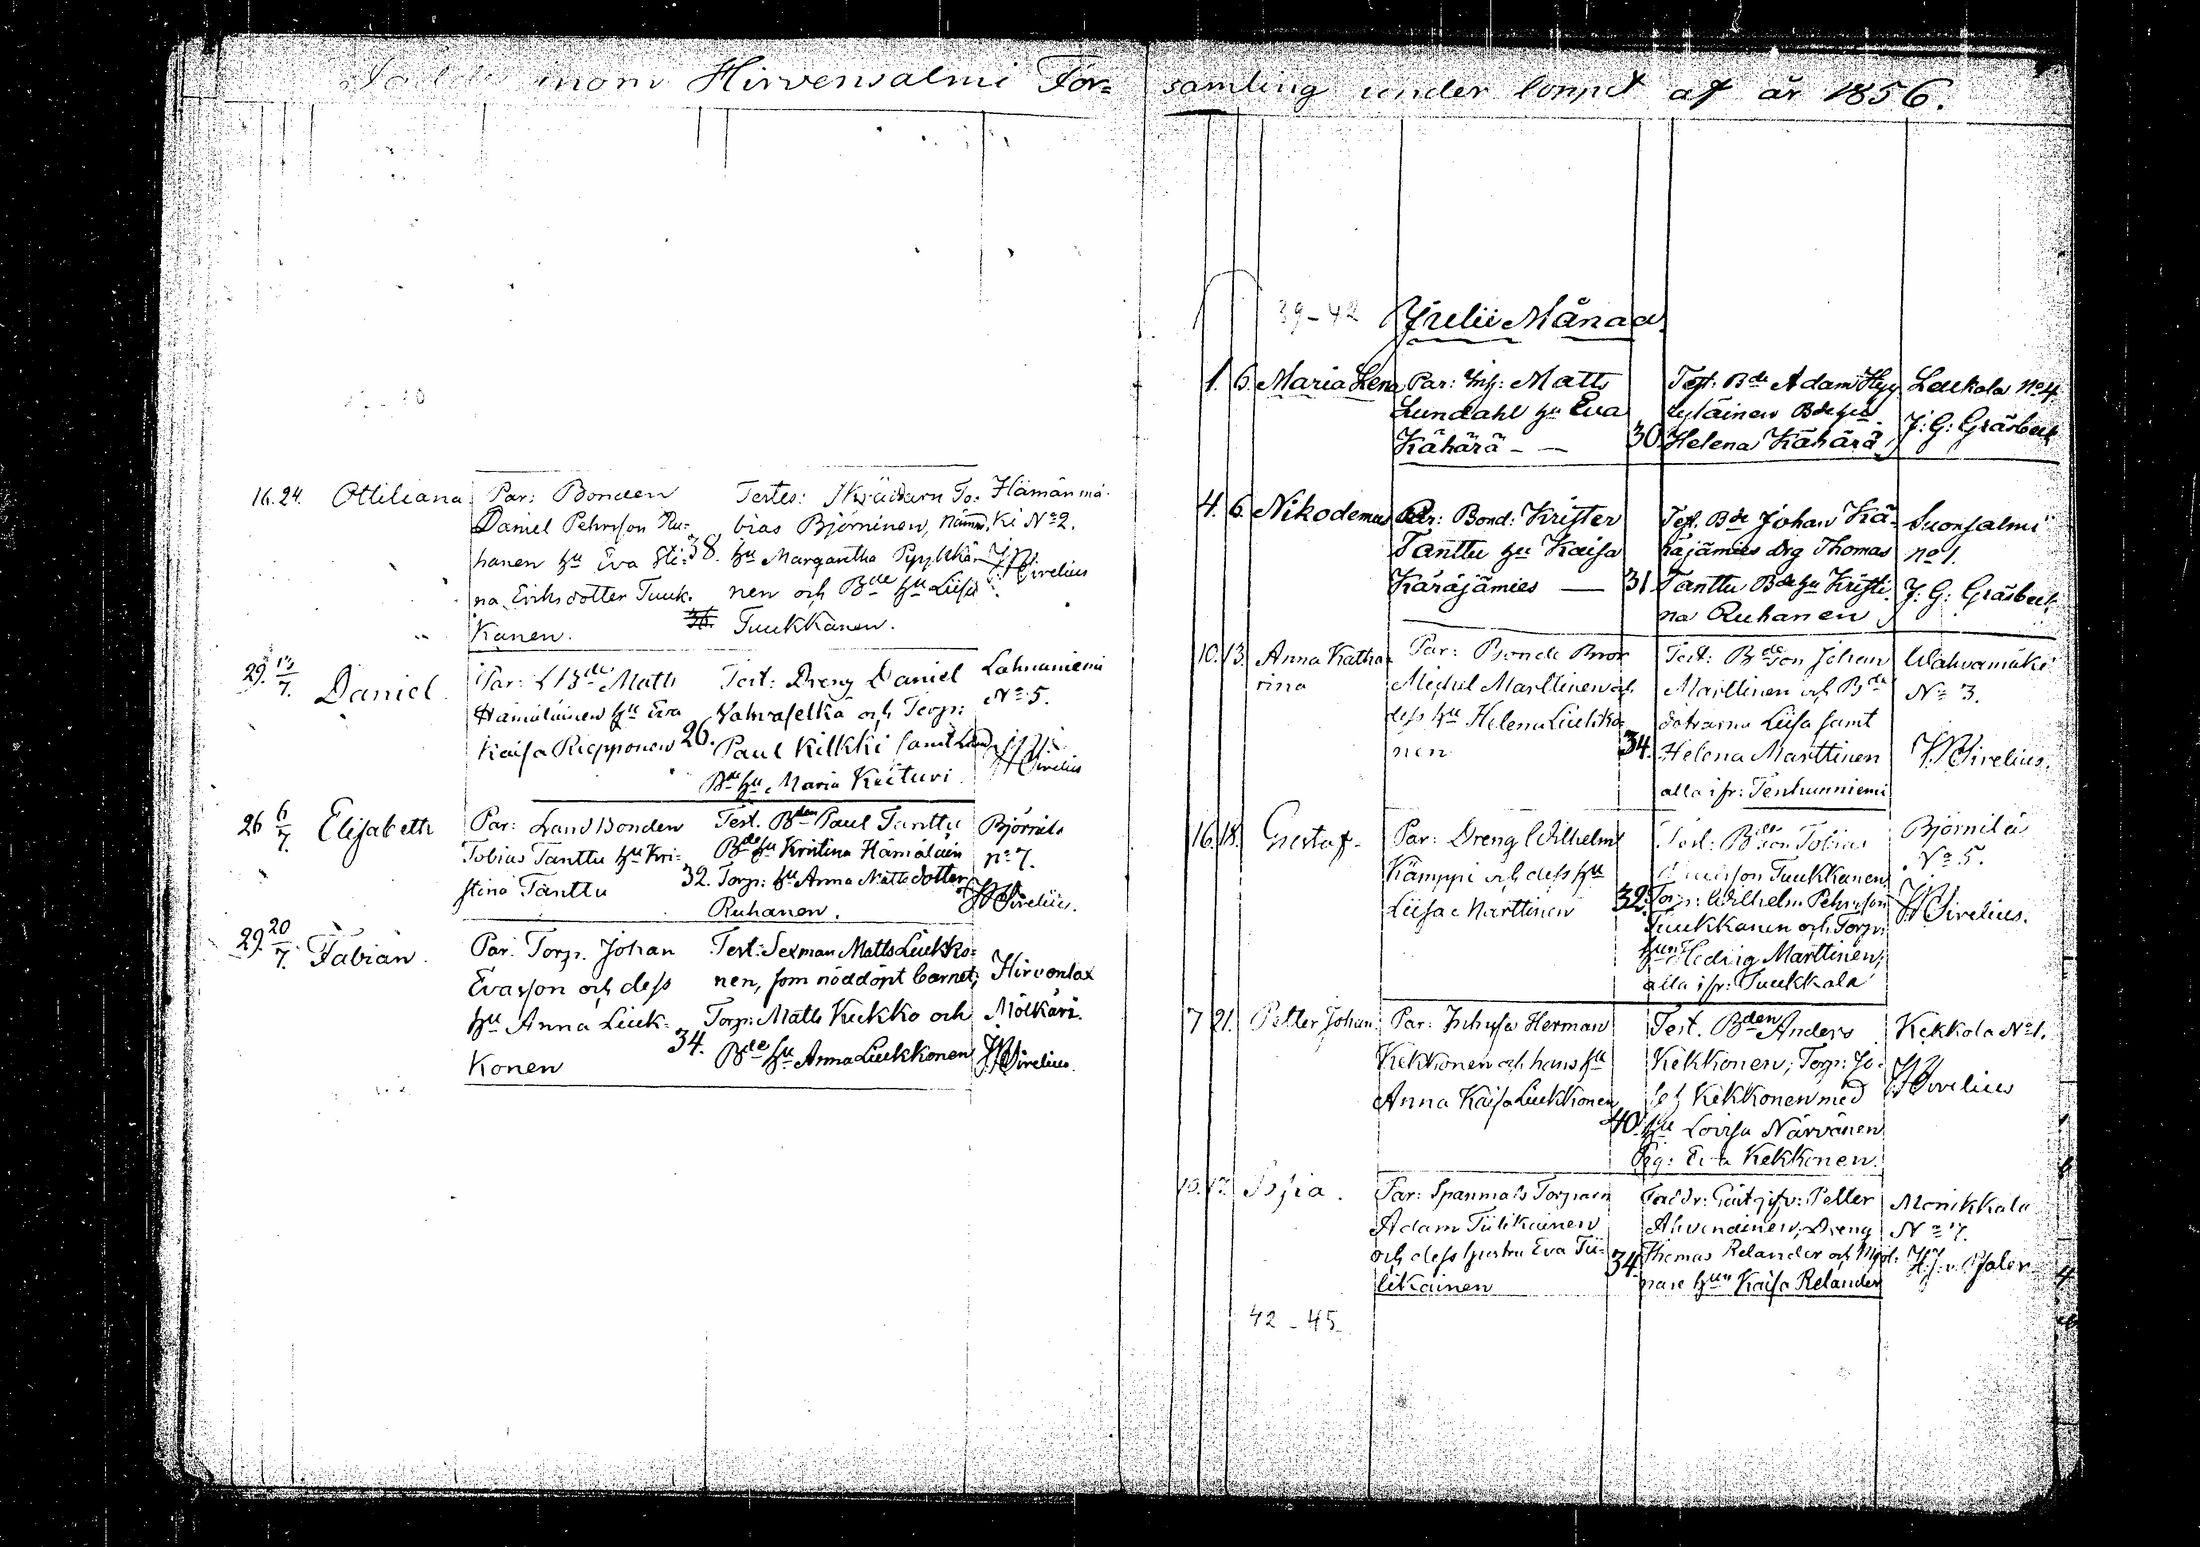 inom Hirvensalmi För=
samling under loppet af år 1856.
16. 24. Ottiliana
Par: Bonden
Daniel Pehrsson Ru=
hanen hu Eva Sti=
na Eriksdotter Tuuk=
kanen.
38.
Testes: Skräddarn To=
bias Björninen, Nämm.
hu Margaretha Pyykkä
nen och Bde hu Liisa
Tuukkanen.
Hämänmä
ki No 2.
Sirelius
29. 13/7. Daniel.
Par: L Bde Matts
Hämäläinen hu Eva
Kaisa Riepponen
26.
Test: Dreng Daniel
Vahvaselkä och Torp:
Paul Kilkki samt Land
Bde hu Maria Keituri.
Lahnaniemi
No 5.
Sirelius
26 6/7. Elisabeth
Par: Land Bonden
Tobias Tanttu hu Kri=
stina Tanttu
32.
Test. Bden Paul Tanttu
Bde hu Kristina Hämäläin
Torp: hu Anna Mattsdotter
Ruhanen.
Björnilä
no 7.
Sirelius.
29. 20/7. Fabian.
Par. Torp. Johan
Evasson och dess
hu Anna Liuk=
konen
34.
Test: Sexman Matts Liukko=
nen, som nöddöpt barnet;
Torp: Matts Kukko och
Bde hu Anna Liukkonen
Hirvonlax
Mölkäri.
Sirelius.
39-42
Julii Månad
1. 6. Maria Lena
Par: Inh: Matts
Lundahl hu Eva
Kähärä - —
30.
Test: Bde Adam Hyy
ryläinen Bde hu
Helena Kähärä
Leukola No 4
J: G: Gräsbeck
4. 6. Nikodemus
Par: Bond: Krister
Tanttu hu Kaisa
Käräjämies —
31
Test. Bde Johan Kä=
räjämies Drg Thomas
Tanttu Bde hu Kristi
na Ruhanen
Suonsalmi
no 1.
J: G: Gräsbeck
10. 13. Anna Katha=
rina
Par: Bonde Bror
Michel Marttinen och
dess hu Helena Liukko=
nen
34.
Test: Bdeson Johan
Marttinen och Bde
dotrarna Liisa samt
Helena Marttinen
alla ifr: Tenhunniemi
Wahvamäki
No 3.
Sirelius.
16. 18. Gustaf.
Par: Dreng Wilhelm
Kämppi och dess hu
Liisa Marttinen
32.
Test: Bdeson Tobias
Tuukkanen
Torp: Wilhelm Pehrsson
Tuukkanen och Torp:
hun Hedvig Marttinen,
alla ifr: Tuukkala
Björnilä
No 5.
Sirelius.
7 21. Petter Johan
Par: Inhyse Herman
Kekkonen och hans hu
Anna Kaisa Liukkonen
40.
Test. Bden Anders
Kekkonen; Torp: Jo=
sef Kekkonen med
hu Lovisa Närvänen
Pig: Eva Kekkonen.
Kekkola No 1.
Sirelius
Sofia.
Par: Spanmåls Torparen
Adam Tiilikainen
och dess hustru Eva Tii=
likainen
34.
Faddr: Gästgifv: Petter
Ahvenainen, Dreng
Thomas Relander och Mjöl=
nare hun Kaisa Relander
Monikkala
No 7.
42-45